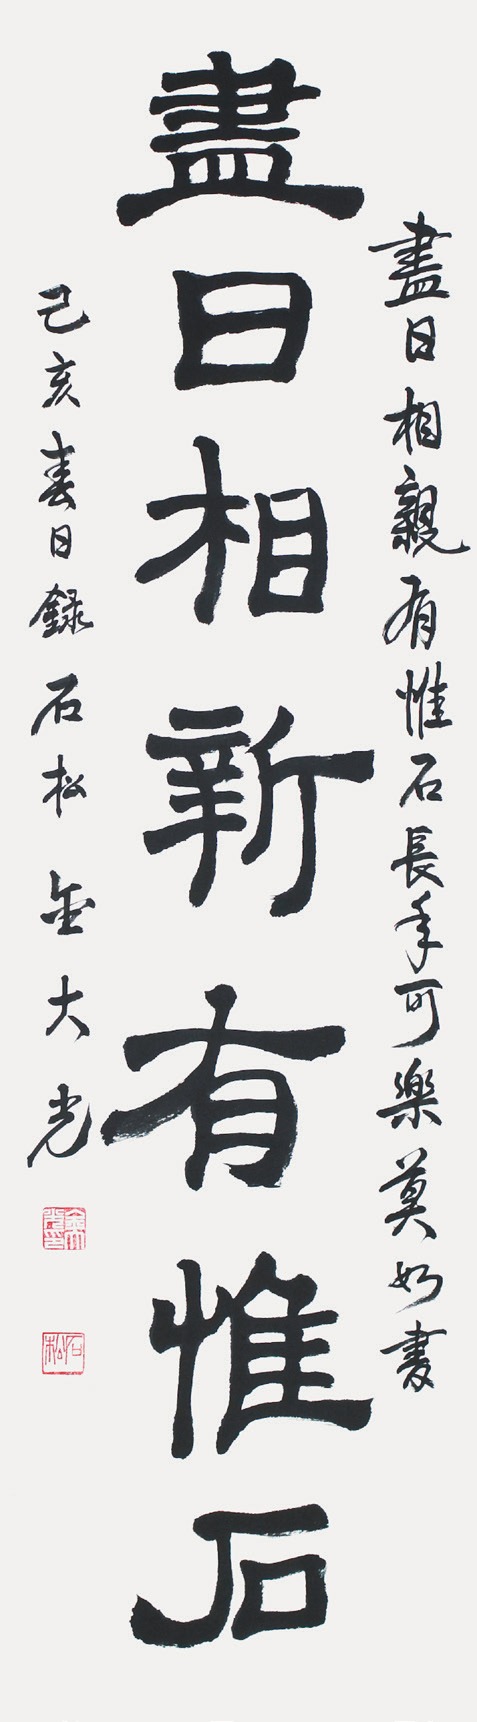 盡日相親有惟石長年可樂莫如書
盡日相新有惟石
己亥春日錄石松金大光
金大光印
石松